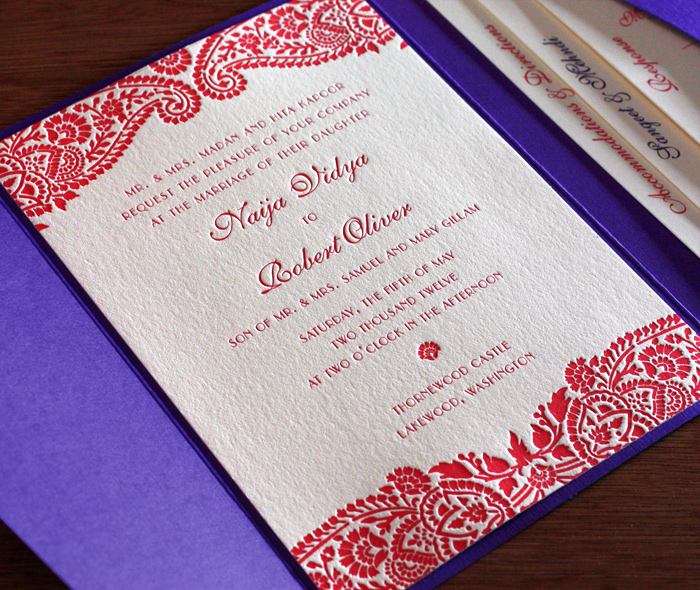 MR. & MRS. MADAN AND HITA KAPOOR
REQUEST THE PLEASURE OF YOUR COMPANY
AT THE MARRIAGE OF THEIR DAUGHTER
Naija Vidya
TO
Robert Oliver
SON OF MR. & MRS. SAMUEL AND MARY GILLAM
SATURDAY, THE FIFTH OF MAY
TWO THOUSAND TWELVE
AT TWO O'CLOCK IN THE AFTERNOON
THORNEWOOD CASTLE
LAKEWOOD, WASHINGTON
Accommodations & Directions
Sangeet & Mehndi
Response